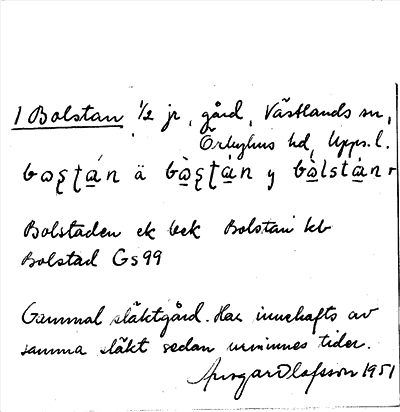 1 Bolstan 1/2 jr, gård, Västlands sn,
Örbyhus hd, Upps. l.
ä y
Bolstaden ek bek Bolstan kb
Bolstad Gs 99
Gammal släktgård. Har innehafts av
samma släkt sedan urminnes tider.
Ansgar Olofsson 1951